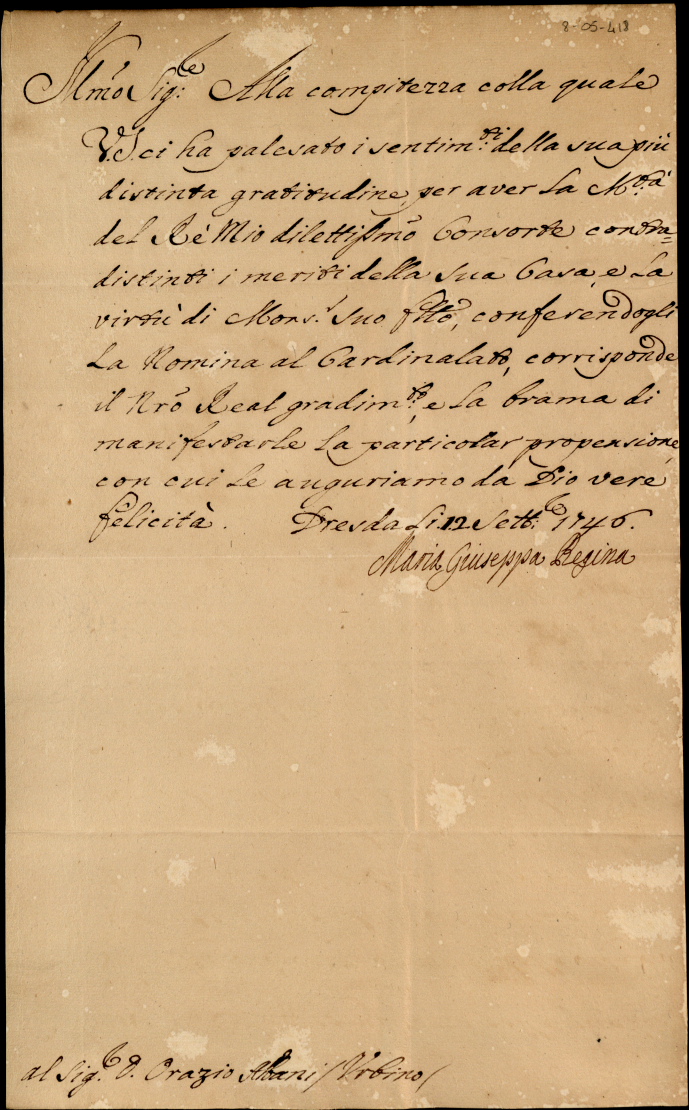 8-05-418
Illmo Sig:re Alla compitezza colla quale
V.S. ci ha palesato i sentim:ti della sua più
distinta gratitudine, per aver La M:tà
del Rè Mio dilettissmo Consorte contra=
distinti i meriti della Sua Casa, e La
virtù di Mons:r Suo fllo, conferendogli
La Nomina al Cardinalato, corrisponde
il Nrõ Real gradim:to, e La brama di
manifestarle La particolar propensione,
con cui Le auguriamo da Dio vere
felicità. Dresda Li 12 Sett:e 1746.
Maria Giuseppa Regina
al Sig:e D. Orazio Albani / Urbino /